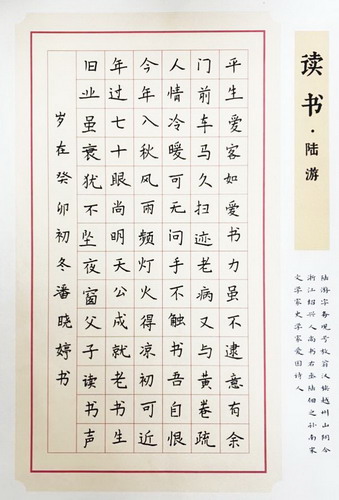 读书·陆游
陆游字务观号放翁汉族越州山阴今
浙江绍兴人尚书右丞陆佃之孙南宋
文学家史学家爱国诗人
平生爱客如爱书力虽不逮意有余
门前车马久扫迹老病又与黄卷疏
人情冷暖可无问手不触书吾自恨
今年入秋风雨频灯火得凉初可近
年过七十眼尚明天公成就老书生
旧业虽衰犹不坠夜窗父子读书声
岁在癸卯初冬潘晓婷书